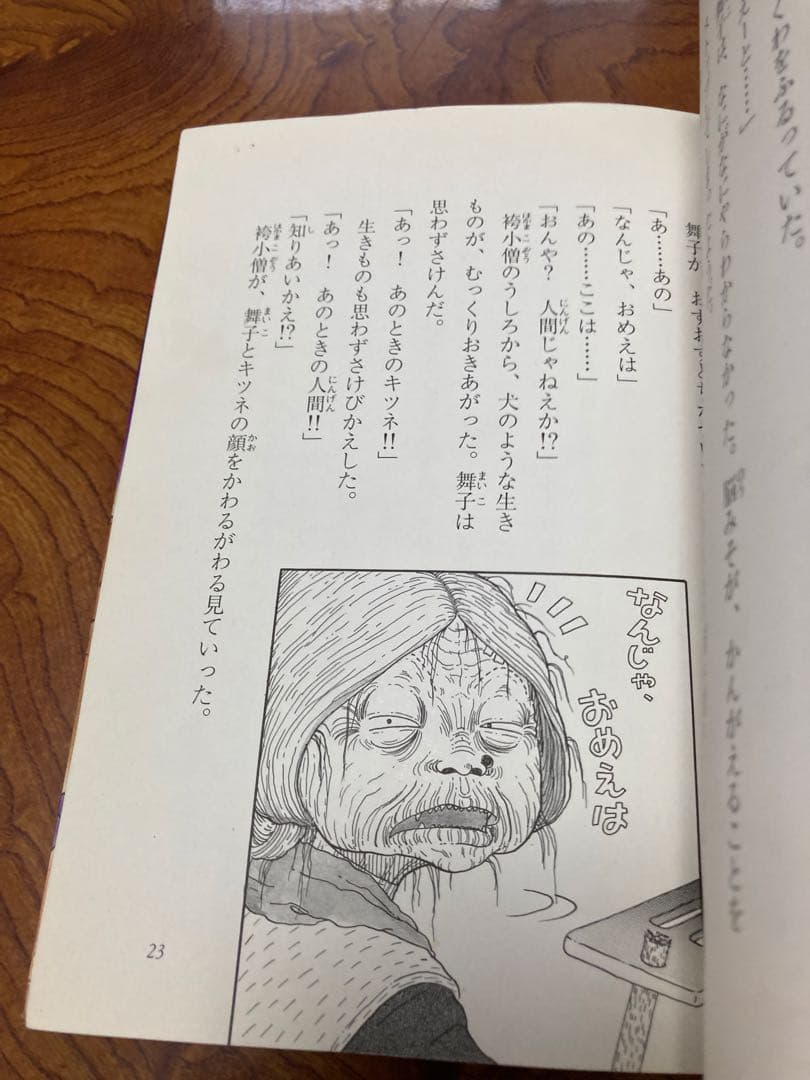 くわをふるっていた。
なかった。脳みそが、かんがえることを
舞子が
「あ……あの」
「なんじゃ、おめえは」
「あの……ここは……」
「おんや？　人間じゃねえか!?」
袴小僧のうしろから、犬のような生き
ものが、むっくりおきあがった。舞子は
思わずさけんだ。
「あっ！　あのときのキツネ!!」
生きものも思わずさけびかえした。
「あっ！　あのときの人間!!」
「知りあいかえ!?」
袴小僧が、舞子とキツネの顔をかわるがわる見ていった。
なんじゃ、
おめえは
23